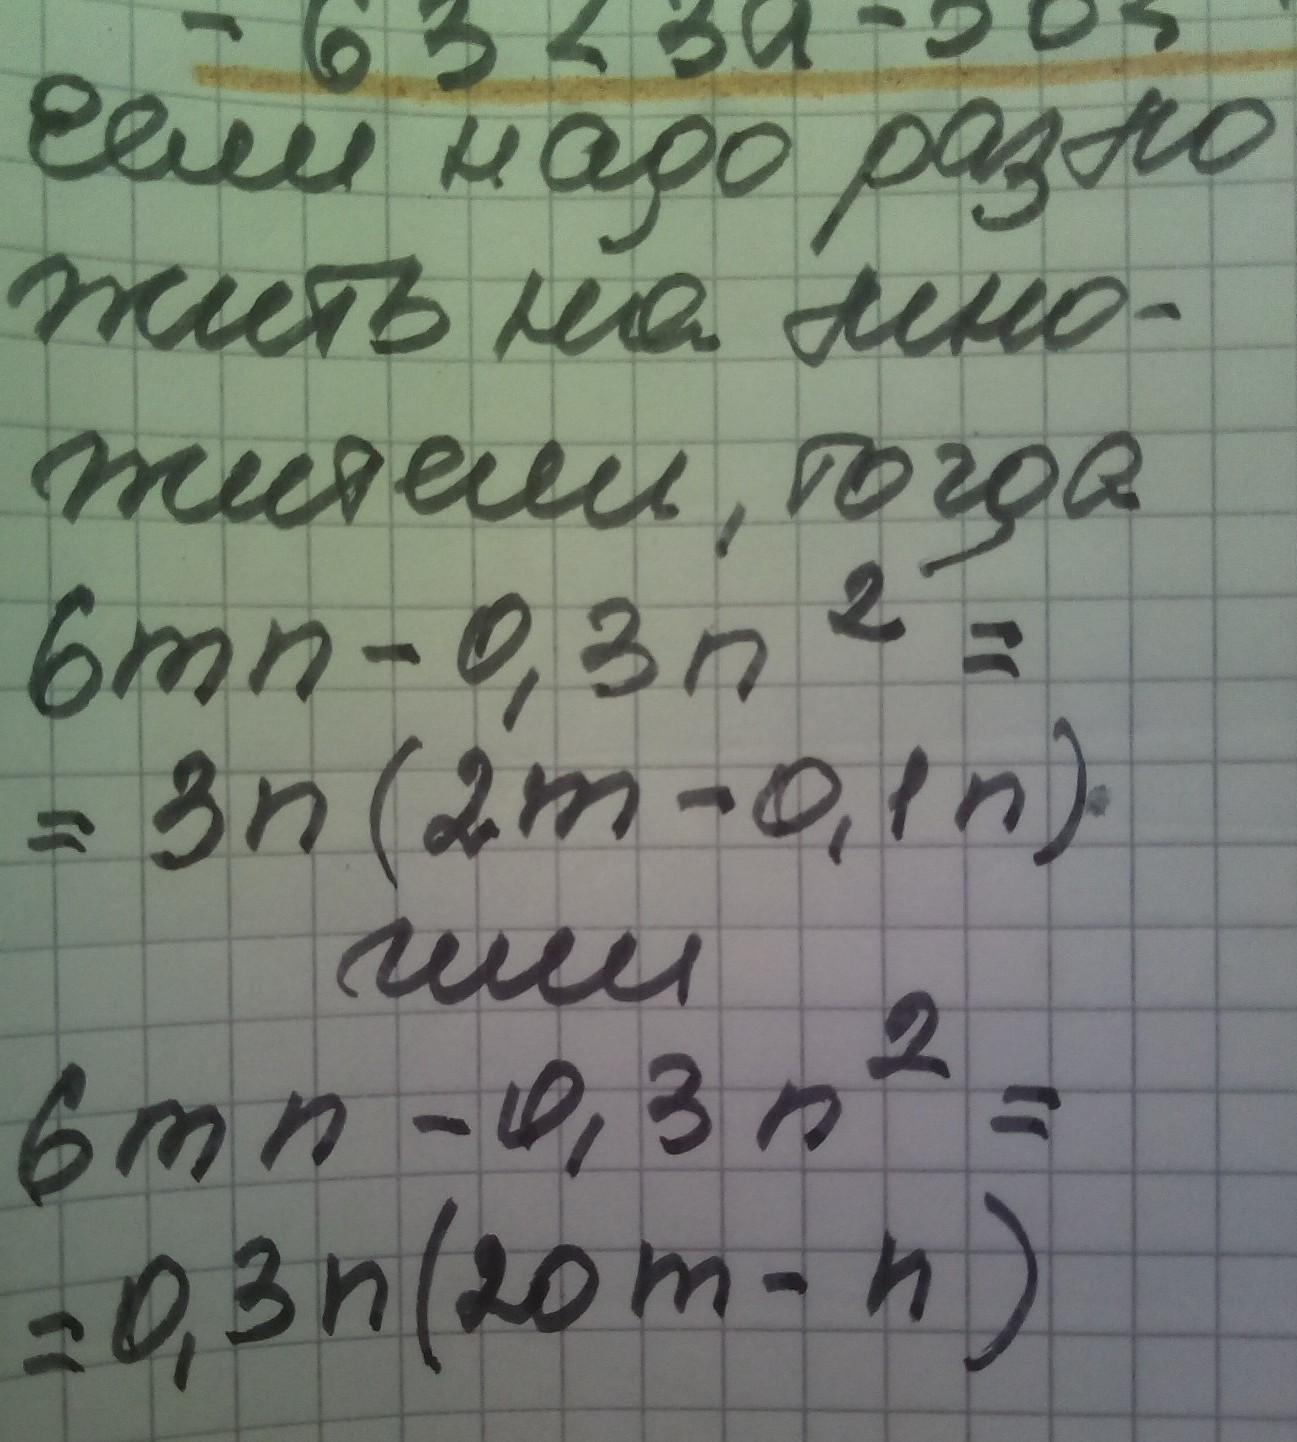 если надо разло
жить на мно-
жители, тогда
6mn - 0,3n² =
= 3n(2m - 0,1n)
или
6mn - 0,3n² =
= 0,3n(20m - n)